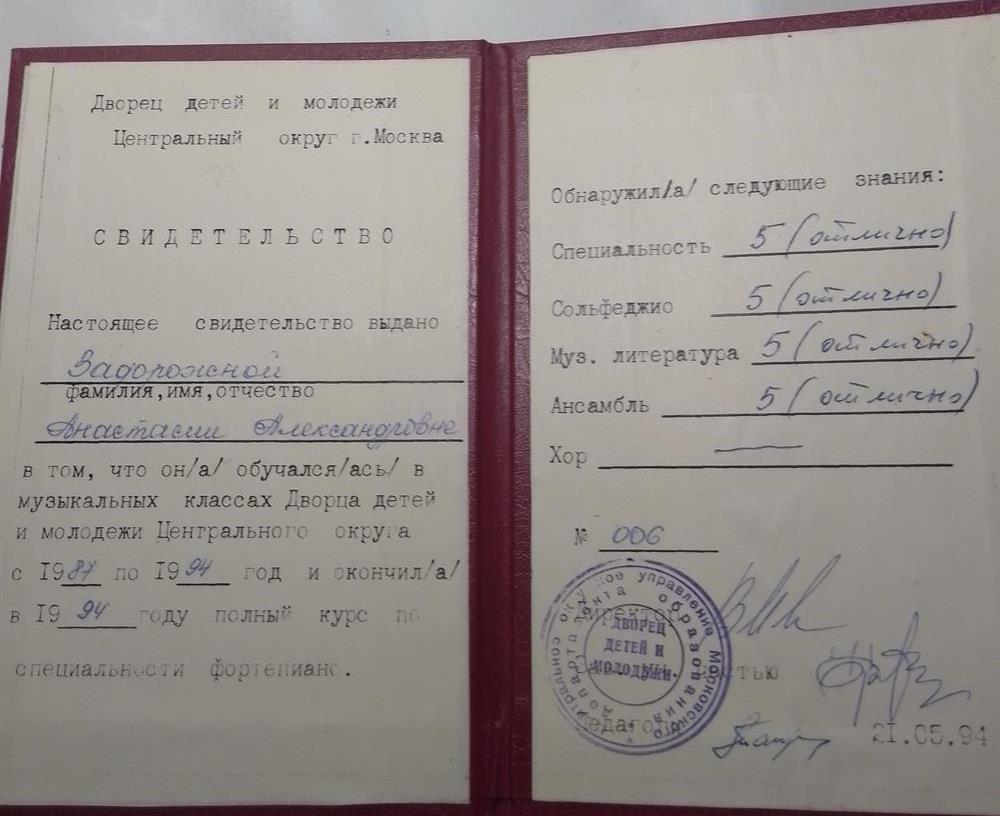 Дворец детей и молодежи
Центральный округ г.Москва
СВИДЕТЕЛЬСТВО
Настоящее свидетельство выдано
Задорожной
фамилия,имя,отчество
Анастасии Александровне
в том, что он/а/ обучался/ась/ в
музыкальных классах Дворца детей
и молодежи Центрального округа
с 1987 по 1994 год и окончил/а/
в 1994 году полный курс по
специальности фортепиано.
Обнаружил/а/ следующие знания:
Специальность 5 (отлично)
Сольфеджио 5 (отлично)
Муз. литература 5 (отлично)
Ансамбль 5 (отлично)
Хор —
№ 006
Директор
Педагог
21.05.94
управление Московского
образования
ДВОРЕЦ
ДЕТЕЙ И
МОЛОДЕЖИ